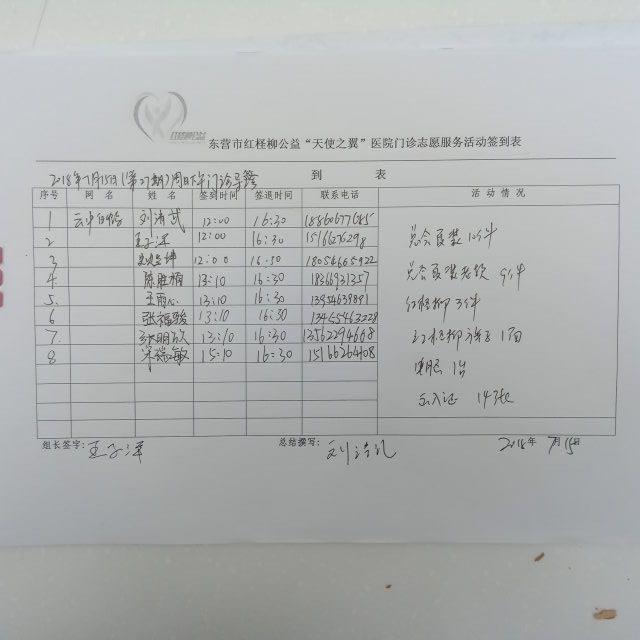 东营市红柽柳公益“天使之翼”医院门诊志愿服务活动签到表
2018年7月15日(第27期)周日下午门诊导医 签到表
序号 网名 姓名 签到时间 签退时间 联系电话 活动情况
1 云中白鸽 刘清武 12:00 16:30
2 王子泽 12:00 16:30 15166276298
3 12:00 16:30 18054665922
4 陈胜楠 13:10 16:30 18366931357
5. 王雨心 13:10 16:30 13954639891
6 张福骏 13:10 16:30 13455463228
7. 张明欣 13:10 16:30 13562294668
8 宋端敏 15:10 16:30 15166264408
总会夏装 12件
总会夏装老款 9件
红柽柳 3件
红柽柳旗子 1面
1台
出入证 14张
组长签字: 王子泽 总结撰写: 2018年7月15日